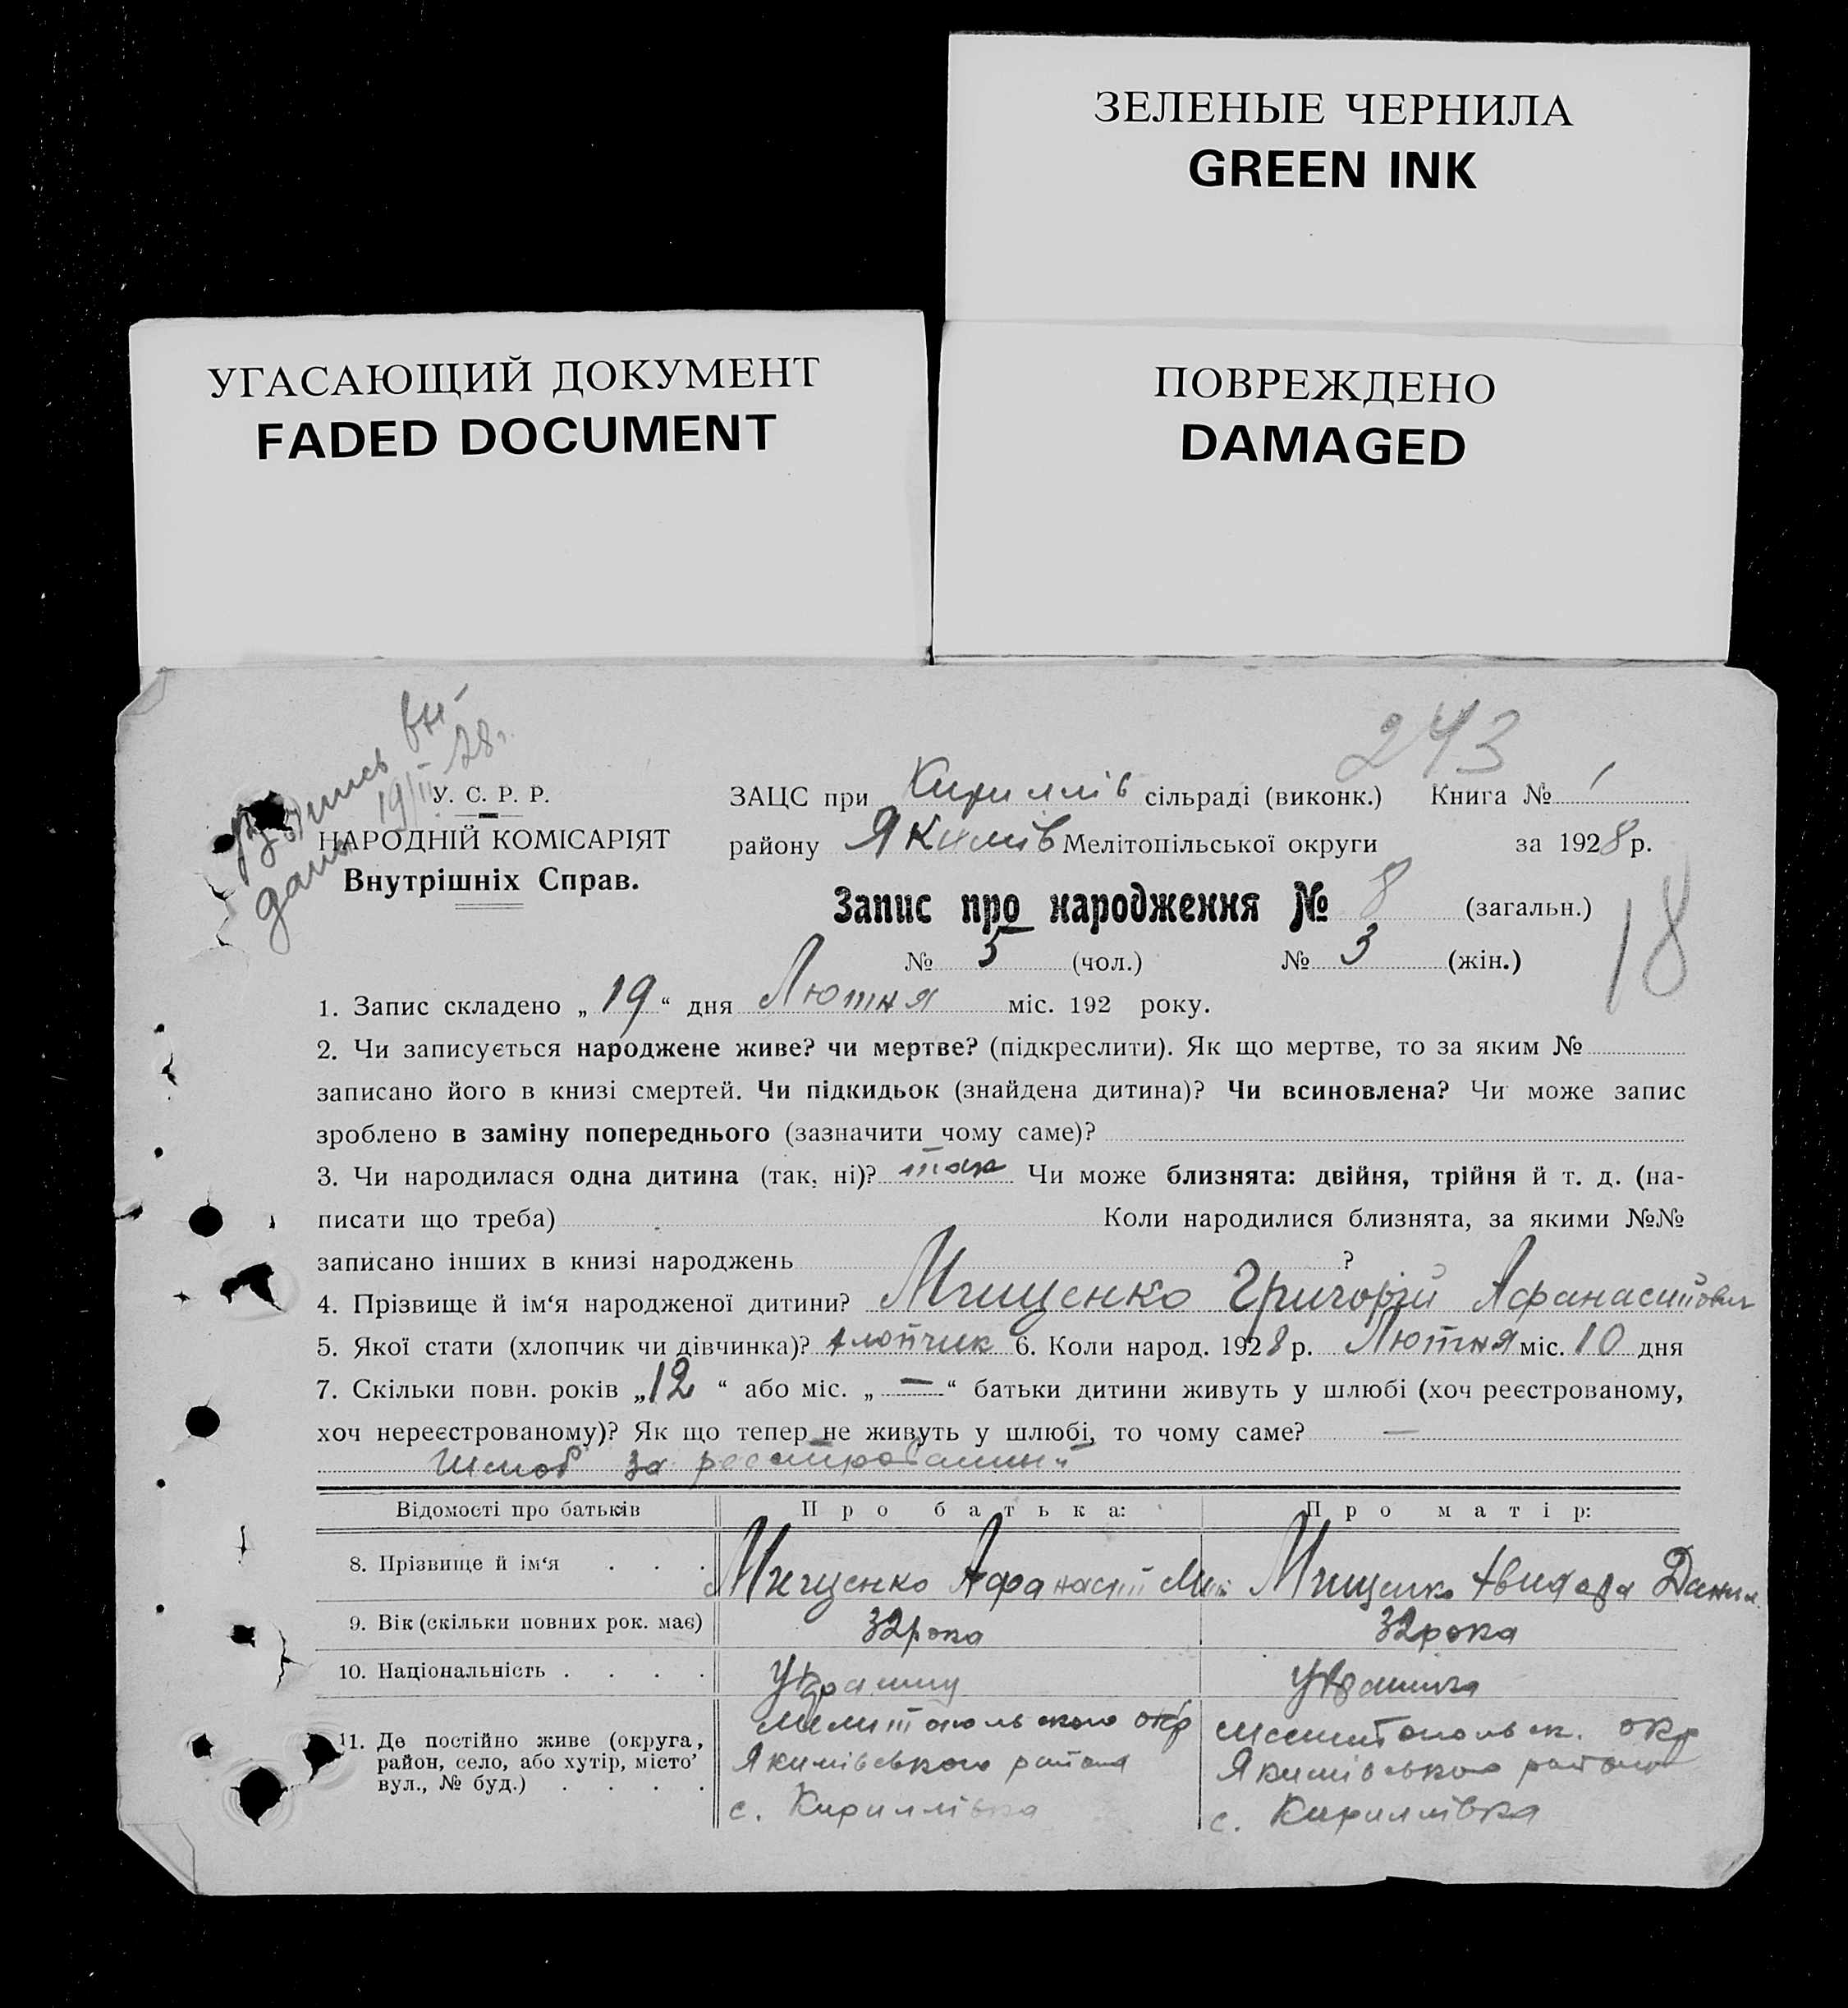 ЗЕЛЕНЫЕ ЧЕРНИЛА
GREEN INK
УГАСАЮЩИЙ ДОКУМЕНТ
FADED DOCUMENT
ПОВРЕЖДЕНО
DAMAGED
243
19/II-28г.
У. С. Р. Р.
НАРОДНІЙ КОМІСАРІЯТ
Внутрішніх Справ.
ЗАЦС при Кириллів сільраді (виконк.) Книга № 1
району Якимів Мелітопільської округи за 1928 р.
Запис про народження № 8 (загальн.)
18
№ 5 (чол.) № 3 (жін.)
1. Запис складено „19“ дня Лютня міс. 192 року.
2. Чи записується народжене живе? чи мертве? (підкреслити). Як що мертве, то за яким №
записано його в книзі смертей. Чи підкидьок (знайдена дитина)? Чи всиновлена? Чи може запис
зроблено в заміну попереднього (зазначити чому саме)?
3. Чи народилася одна дитина (так, ні)? так Чи може близнята: двійня, трійня й т. д. (на-
писати що треба) Коли народилися близнята, за якими №№
записано інших в книзі народжень ?
4. Прізвище й ім‘я народженої дитини? Мищенко Григорій Афанасийович
5. Якої стати (хлопчик чи дівчинка)? хлопчик 6. Коли народ. 1928 р. Лютня міс. 10 дня
7. Скільки повн. років „12“ або міс. „—“ батьки дитини живуть у шлюбі (хоч реєстрованому,
хоч нереєстрованому)? Як що тепер не живуть у шлюбі, то чому саме? —
Шлюб за
Відомості про батьків Про батька: Про матір:
8. Прізвище й ім‘я . . . Мищенко Афанасий Мищенко Данил
9. Вік (скільки повних рок. має) 32 рока 32 рока
10. Національність . . . .
11. Де постійно живе (округа, район, село, або хутір, місто’ вул., № буд.) . . . .
Мелитопольского окр
Якимівського района
с. Кириллівка
Мелитопольск. окр
Якимівського района
с. Кириллівка